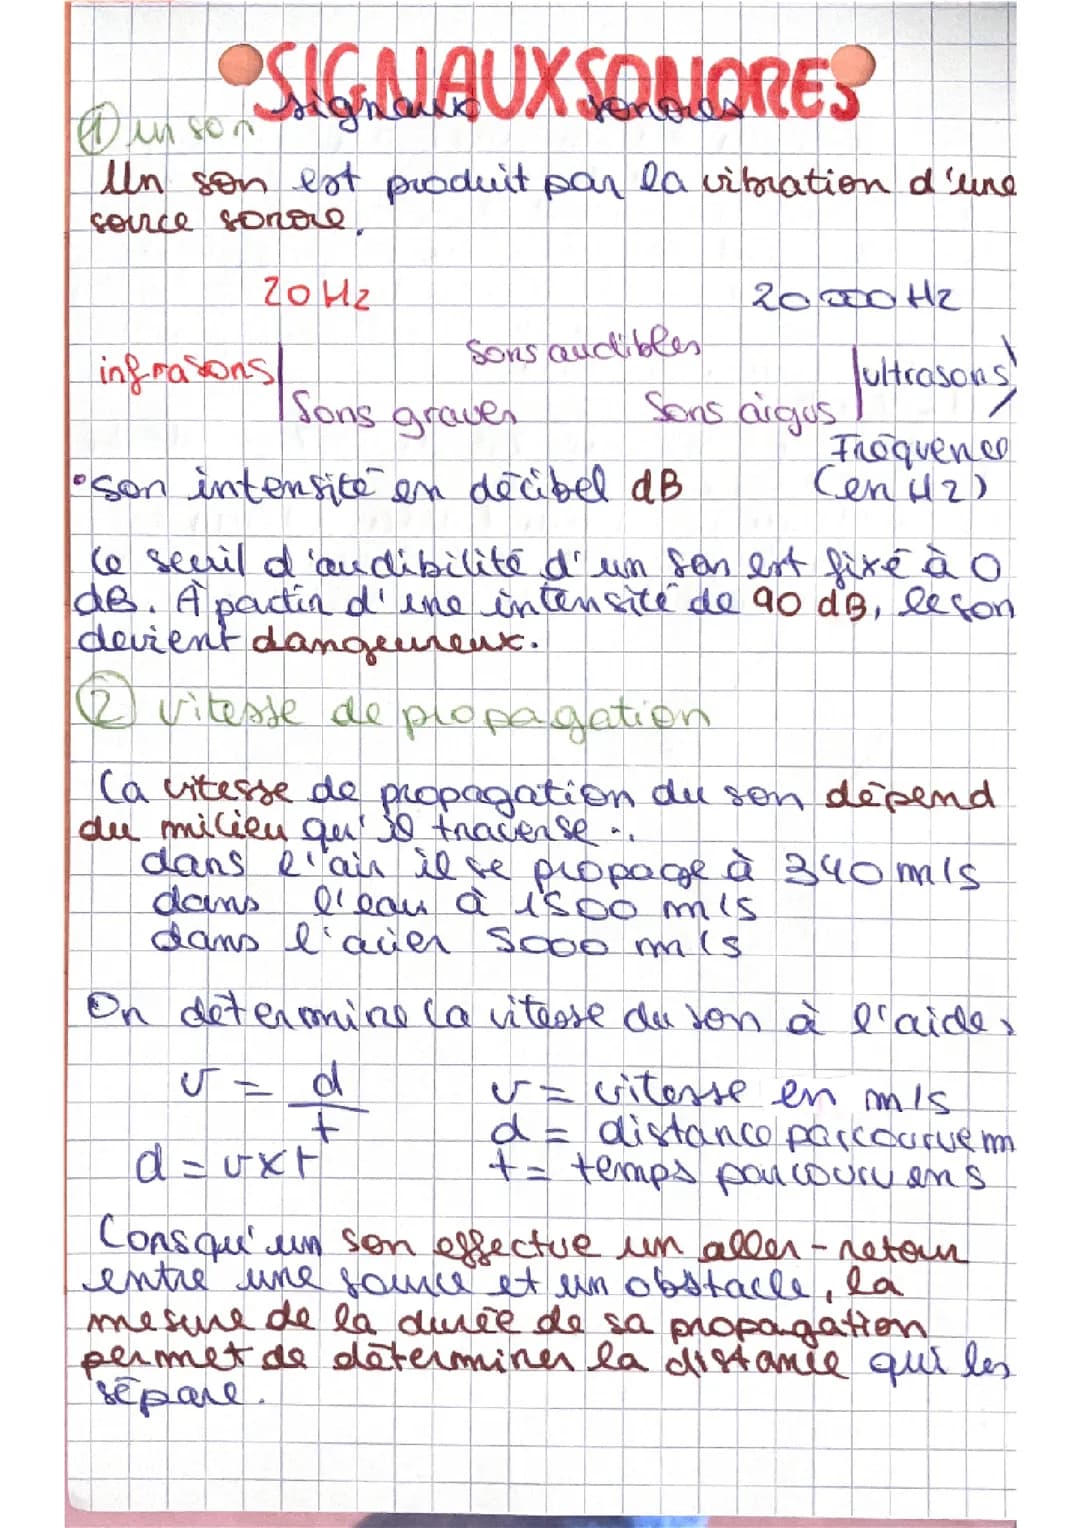 SIGNAUX SONORES
signaux sonores
① un son
Un son est produit par la vibration d'une
source sonore.
20 Hz 20 000 Hz
sons audibles
infrasons ultrasons
Sons graves Sons aigus
Fréquence
• son intensité en décibel dB (en Hz)
Le seuil d'audibilité d'un son est fixé à 0
dB. À partir d'une intensité de 90 dB, le son
devient dangeureux.
② vitesse de propagation
La vitesse de propagation du son dépend
du milieu qu'il traverse :
dans l'air il se propage à 340 m/s
dans l'eau à 1500 m/s
dans l'acier 5000 m/s
On détermine la vitesse du son à l'aide :
v = d/t v = vitesse en m/s
d = distance parcourue m
d = v x t t = temps parcouru en s
Lorsqu'un son effectue un aller-retour
entre une source et un obstacle, la
mesure de la durée de sa propagation
permet de déterminer la distance qui les
sépare.